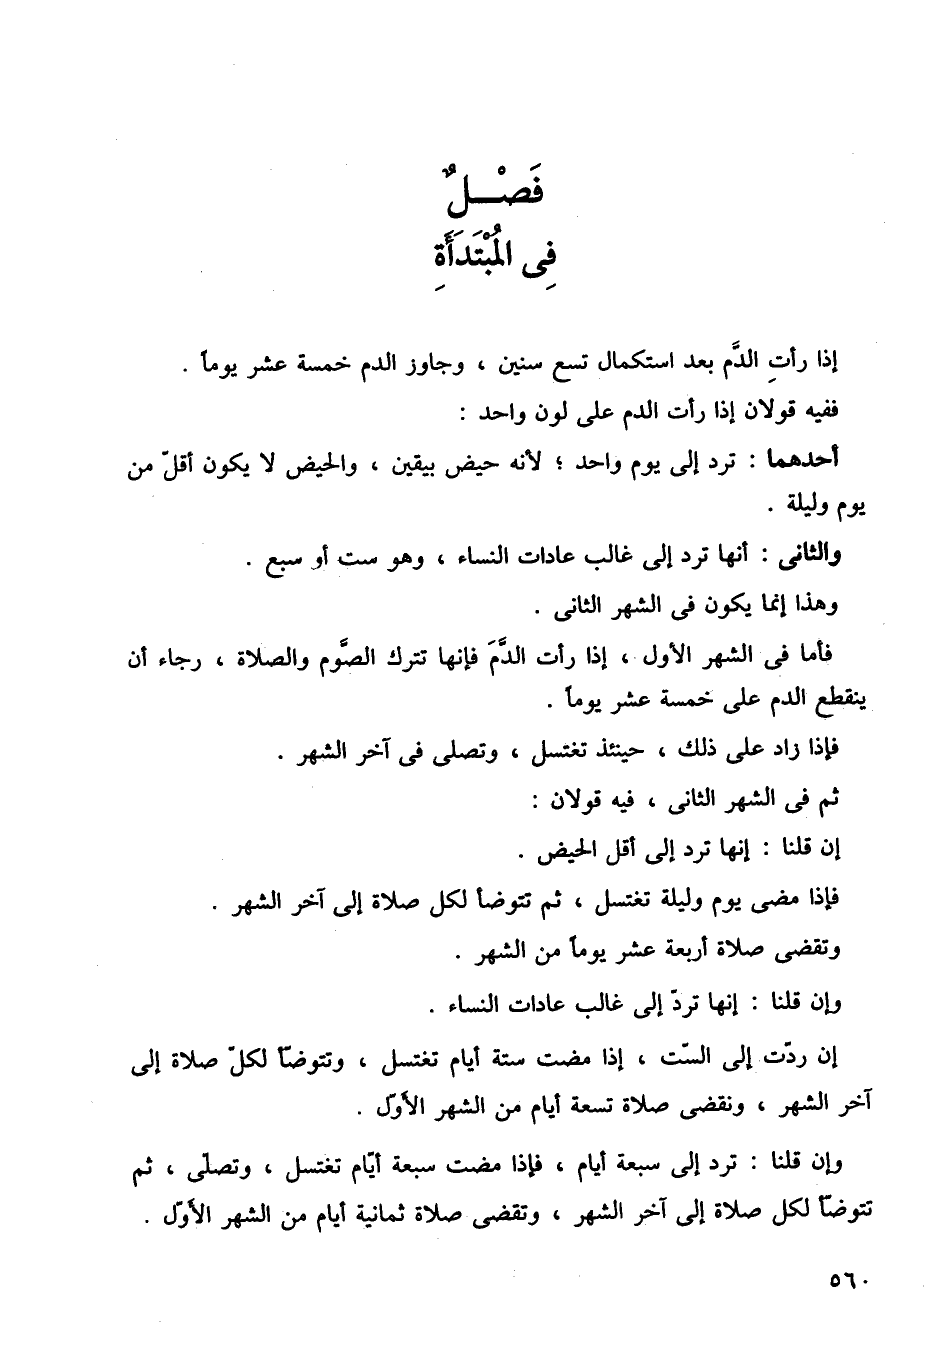 فَصْـــلٌ
فِى المُبْتَدَأَةِ
إذا رأتِ الدَّم بعد استكمال تسع سنين ، وجاوز الدم خمسة عشر يوماً .
ففيه قولان إذا رأت الدم على لون واحد :
أحدهما : ترد إلى يوم واحد ؛ لأنه حيض بيقين ، والحيض لا يكون أقلّ من
يوم وليلة .
والثانى : أنها ترد إلى غالب عادات النساء ، وهو ست أو سبع .
وهذا إنما يكون فى الشهر الثانى .
فأما فى الشهر الأول ، إذا رأت الدَّمَ فإنها تترك الصَّوم والصلاة ، رجاء أن
ينقطع الدم على خمسة عشر يوماً .
فإذا زاد على ذلك ، حينئذ تغتسل ، وتصلى فى آخر الشهر .
ثم فى الشهر الثانى ، فيه قولان :
إن قلنا : إنها ترد إلى أقل الحيض .
فإذا مضى يوم وليلة تغتسل ، ثم تتوضأ لكل صلاة إلى آخر الشهر .
وتقضى صلاة أربعة عشر يوماً من الشهر .
وإن قلنا : إنها تردّ إلى غالب عادات النساء .
إن ردّت إلى السّت ، إذا مضت ستة أيام تغتسل ، وتتوضّأ لكلّ صلاة إلى
آخر الشهر ، ونقضى صلاة تسعة أيام من الشهر الأوّل .
وإن قلنا : ترد إلى سبعة أيام ، فإذا مضت سبعة أيّام تغتسل ، وتصلّى ، ثم
تتوضّأ لكل صلاة إلى آخر الشهر ، وتقضى صلاة ثمانية أيام من الشهر الأوّل .
٥٦٠